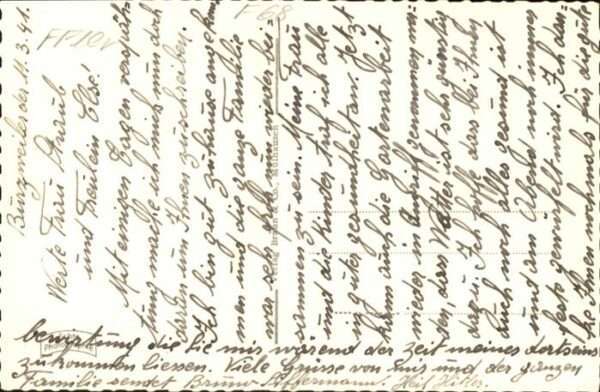 Burzweiler den 11.3.41.
Werte Frau Straub
und Fräulein Else!
Mit einigen Tagen verspät-
ung mache ich mich nun doch
daran um Ihnen zu schreiben.
Ich bin gut zuhause angekom-
men und die ganze Familie
war sehr froh nun wieder bei-
sammen zu sein. Meine Frau
und die Kinder traf ich alle
in guter gesundheit an. Jetzt
kam auch die Gartenarbeit
wieder in Angriff genommen wer-
den, das Wetter ist sehr günstig
dazu. Ich hoffe dass bei Ihnen
auch noch alles gesund ist
und am Abend noch immer
feste gewürfelt wird. Ich dan-
ke Ihnen nochmals für die gute
bewirtung die Sie mir während der Zeit meines dortseins
zukommen liessen. Viele Grüsse von uns und der ganzen
Familie sendet Bruno
F68
FF10V
Verlag Braun & Co., Mülhausen